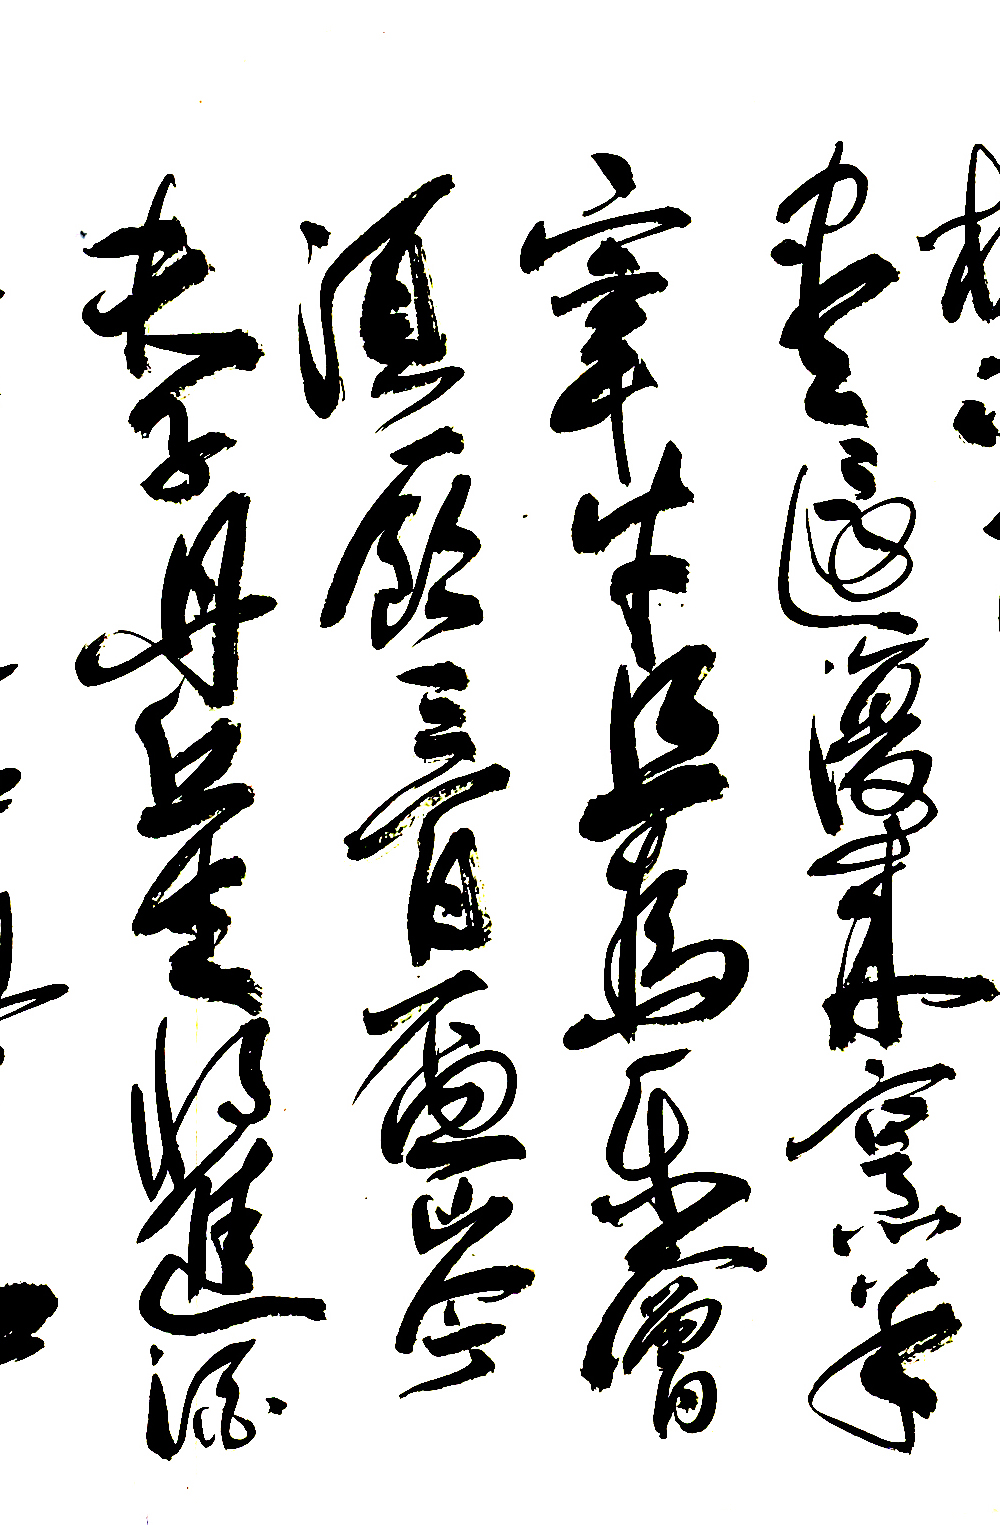 盡還復來烹羊
宰牛且為樂會
須一飲三百盃岑
夫子丹丘生將進酒